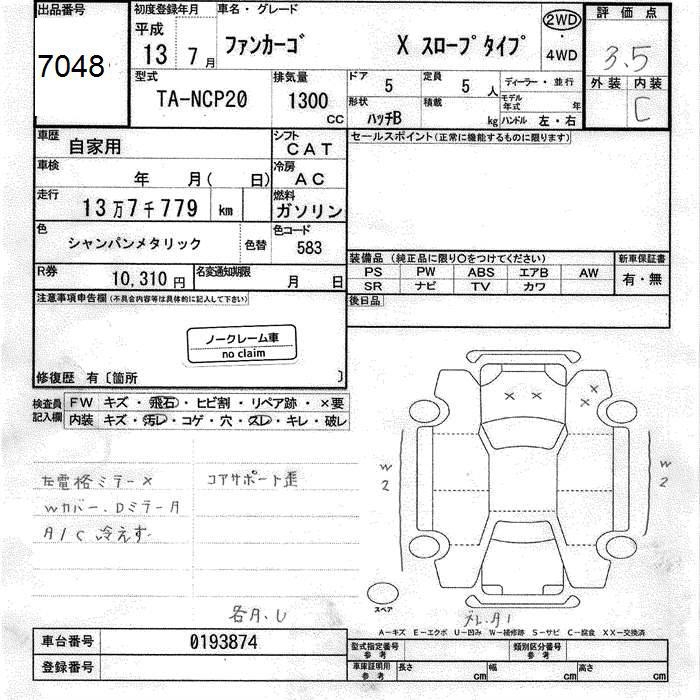 出品番号 初度登録年月 車名・グレード 2WD 評価点
7048 平成 13 7月 ファンカーゴ X スロープタイプ ・ 4WD 3.5
型式 排気量 ドア 定員 ディーラー・並行 外装 内装
TA-NCP20 1300 CC 5 5人 モデル年式 年 C
形状 積載 ハンドル 左・右
ハッチB kg
車歴 自家用 シフト CAT セールスポイント(正常に機能するものに限ります)
車検 年 月( 日) 冷房 AC
走行 13万7千779 km 燃料 ガソリン
色 シャンパンメタリック 色替 色コード 583
装備品 (純正品に限り○をつけてください) 新車保証書
PS PW ABS エアB AW 有・無
SR ナビ TV カワ
R券 10,310円 名変通知期限 月 日
後日品
注意事項申告欄(不具合内容等は具体的に記入して下さい)
ノークレーム車
no claim
修復歴 有〔箇所 〕
検査員記入欄 FW キズ・飛石・ヒビ割・リペア跡・×要
内装 キズ・汚レ・コゲ・穴・スレ・キレ・破レ
左電格ミラー× コアサポート歪
Wカバー、Dミラー A
A/C 冷えず
各A、U
× × × ×
W2 W2
スペア
A−キズ E−エクボ U−凹み W−補修跡 S−サビ C−腐食 XX−交換済
車台番号 0193874 型式指定番号 参考 類別区分番号 参考
登録番号 車庫証明用 参考 長さ cm 幅 cm 高さ cm